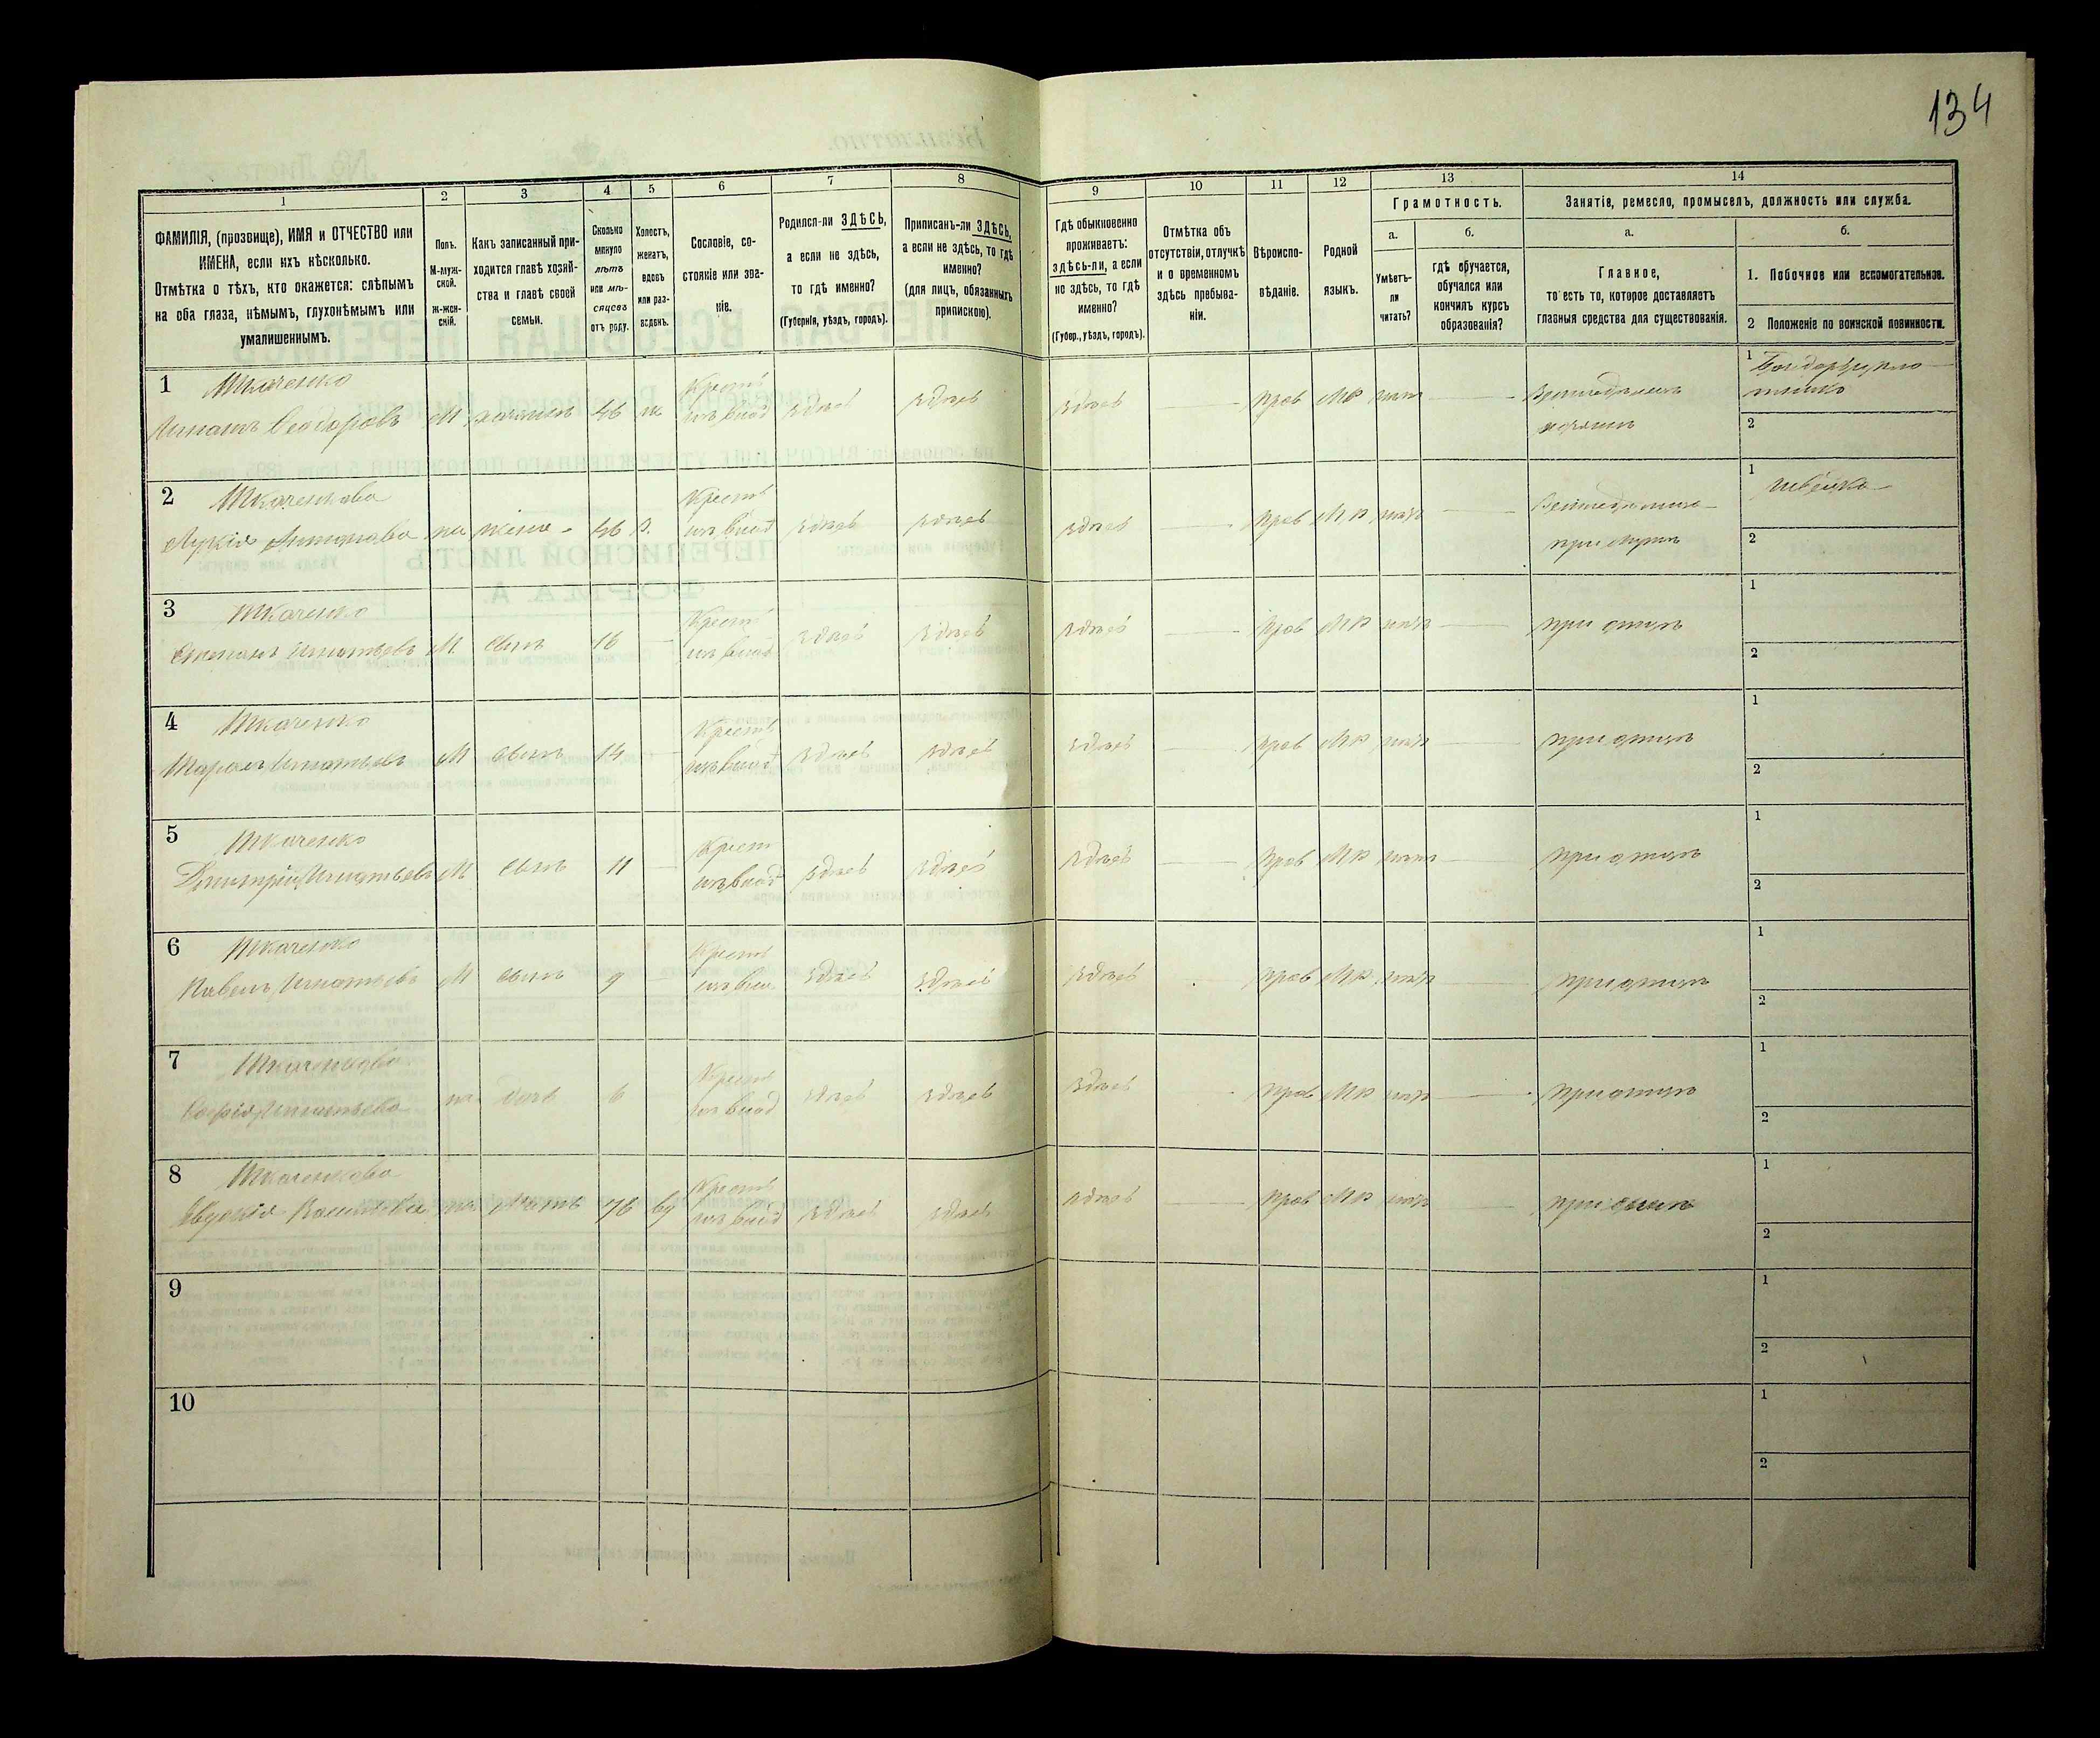 134
1
2
3
4
5
6
7
8
9
10
11
12
13
14
ФАМИЛІЯ, (прозвище), ИМЯ и ОТЧЕСТВО или
ИМЕНА, если ихъ нѣсколько.
Отмѣтка о тѣхъ, кто окажется: слѣпымъ
на оба глаза, нѣмымъ, глухонѣмымъ или
умалишеннымъ.
Полъ.
М-муж-
ской.
Ж-жен-
скій.
Какъ записанный при-
ходится главѣ хозяй-
ства и главѣ своей
семьи.
Сколько
минуло
лѣтъ
или мѣ-
сяцевъ
отъ роду.
Холостъ,
женатъ,
вдовъ
или раз-
веденъ.
Сословіе, со-
стояніе или зва-
ніе.
Родился-ли ЗДѢСЬ,
а если не здѣсь,
то гдѣ именно?
(Губернія, уѣздъ, городъ).
Приписанъ-ли ЗДѢСЬ,
а если не здѣсь, то гдѣ
именно?
(для лицъ, обязанныхъ
припискою).
Гдѣ обыкновенно
проживаетъ:
здѣсь-ли, а если
не здѣсь, то гдѣ
именно?
(Губер., уѣздъ, городъ).
Отмѣтка объ
отсутствіи, отлучкѣ
и о временномъ
здѣсь пребыва-
ніи.
Вѣроиспо-
вѣданіе.
Родной
языкъ.
Грамотность.
а.
Умѣетъ-
ли
читать?
б.
гдѣ обучается,
обучался или
кончилъ курсъ
образованія?
Занятіе, ремесло, промыселъ, должность или служба.
а.
Главное,
то есть то, которое доставляетъ
главныя средства для существованія.
б.
1. Побочное или вспомогательное.
2 Положеніе по воинской повинности.
1 Ткаченко
Игнатъ Феодоровъ М хозяинъ 46 ж Крест изъ влад здѣсь здѣсь здѣсь прав МР нѣтъ Земледѣлецъ
хозяинъ
1
2
2 Ткаченкова
Лукія жена 46 З. Крест изъ влад здѣсь здѣсь здѣсь прав МР нѣтъ
при мужѣ
1 швейка
2
3 Ткаченко
Степанъ Игнатьевъ М сынъ 16 Крест изъ влад здѣсь здѣсь здѣсь прав МР нѣтъ при отцѣ
1
2
4 Ткаченко
Тарасъ Игнатьевъ М сынъ 14 Крест изъ влад здѣсь здѣсь здѣсь прав МР нѣтъ при отцѣ
1
2
5 Ткаченко
Дмитрій Игнатьевъ М сынъ 11 Крест изъ влад здѣсь здѣсь здѣсь прав МР нѣтъ при отцѣ
1
2
6 Ткаченко
Павелъ Игнатьевъ М сынъ 9 Крест изъ влад здѣсь здѣсь здѣсь прав МР нѣтъ при отцѣ
1
2
7 Ткаченкова
Софія Игнатьева ж дочь 6 Крест изъ влад здѣсь здѣсь здѣсь прав МР нѣтъ при отцѣ
1
2
8 Ткаченкова
Евдокія ж мать 76 вд Крест изъ влад здѣсь здѣсь здѣсь прав МР нѣтъ при сынѣ
1
2
9
1
2
10
1
2